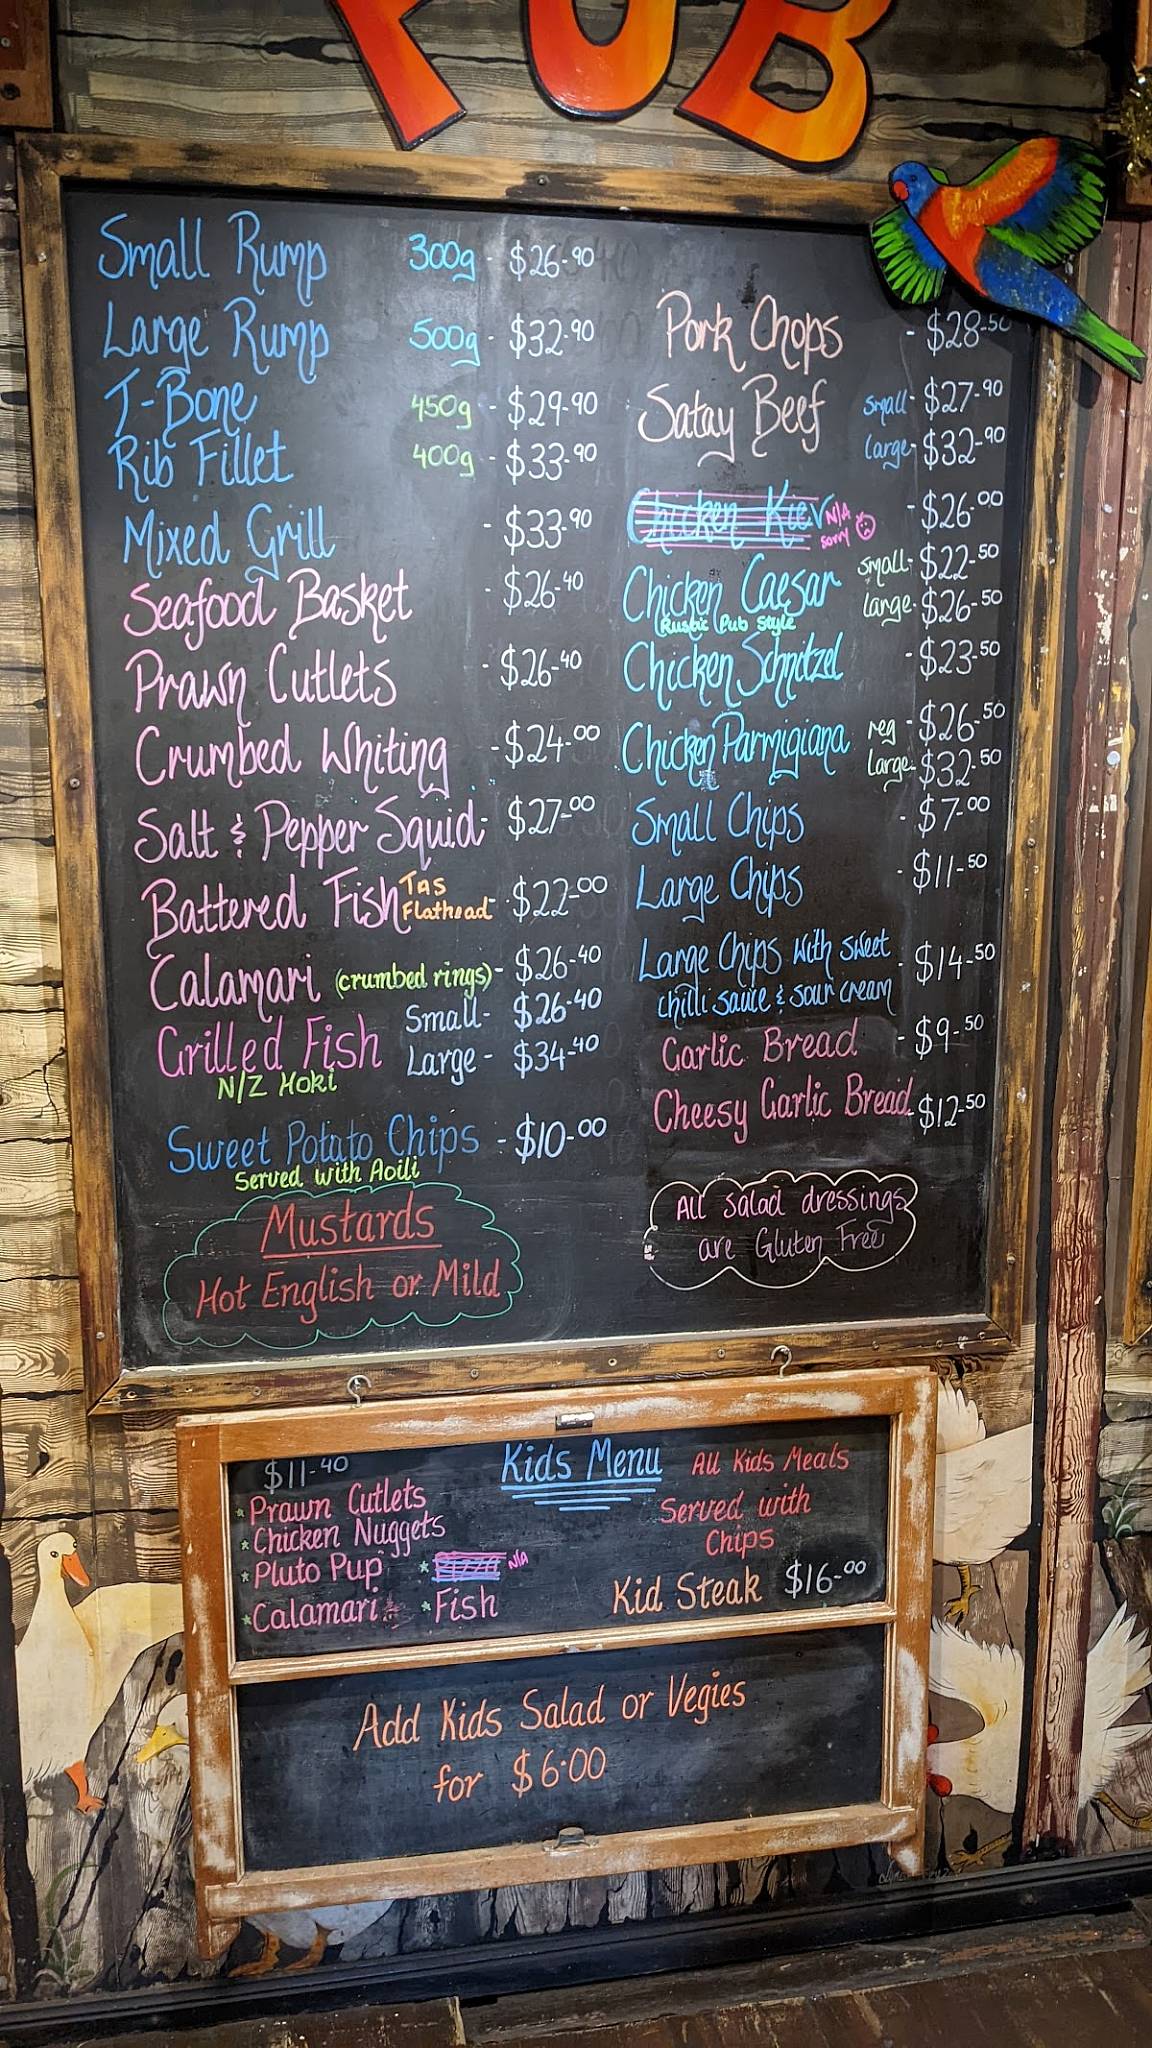 PUB
Small Rump 300g - $26-90
Large Rump 500g - $32-90
T-Bone 450g - $29-90
Rib Fillet 400g - $33-90
Mixed Grill - $33-90
Seafood Basket - $26-40
Prawn Cutlets - $26-40
Crumbed Whiting - $24-00
Salt & Pepper Squid - $27-00
Battered Fish Tas Flathead - $22-00
Calamari (crumbed rings) - $26-40
Grilled Fish Small - $26-40
Large - $34-40
N/Z Hoki
Sweet Potato Chips - $10-00
Served with Aoili
Mustards
Hot English or Mild
Pork Chops - $28-50
Satay Beef small - $27-90
large - $32-90
Chicken Kiev N/A sorry - $26-00
Chicken Caesar small - $22-50
large - $26-50
Rustic Pub Style
Chicken Schnitzel - $23-50
Chicken Parmigiana reg - $26-50
large - $32-50
Small Chips - $7-00
Large Chips - $11-50
Large Chips with sweet
chilli sauce & sour cream - $14-50
Garlic Bread - $9-50
Cheesy Garlic Bread - $12-50
All salad dressings
are Gluten Free
Kids Menu
$11-40
* Prawn Cutlets
* Chicken Nuggets
* Pluto Pup * Pizza N/A
* Calamari * Fish
All Kids Meals
Served with
Chips
Kid Steak $16-00
Add Kids Salad or Vegies
for $6-00